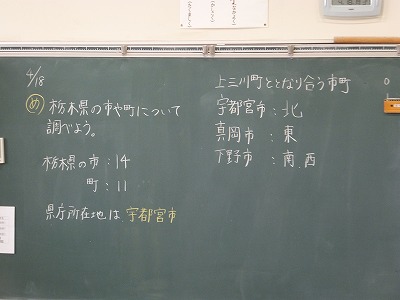 4/18
め 栃木県の市や町について
調べよう。
栃木県の市：14
町：11
県庁所在地は 宇都宮市
上三川町ととなり合う市町
宇都宮市：北
真岡市：東
下野市：南、西